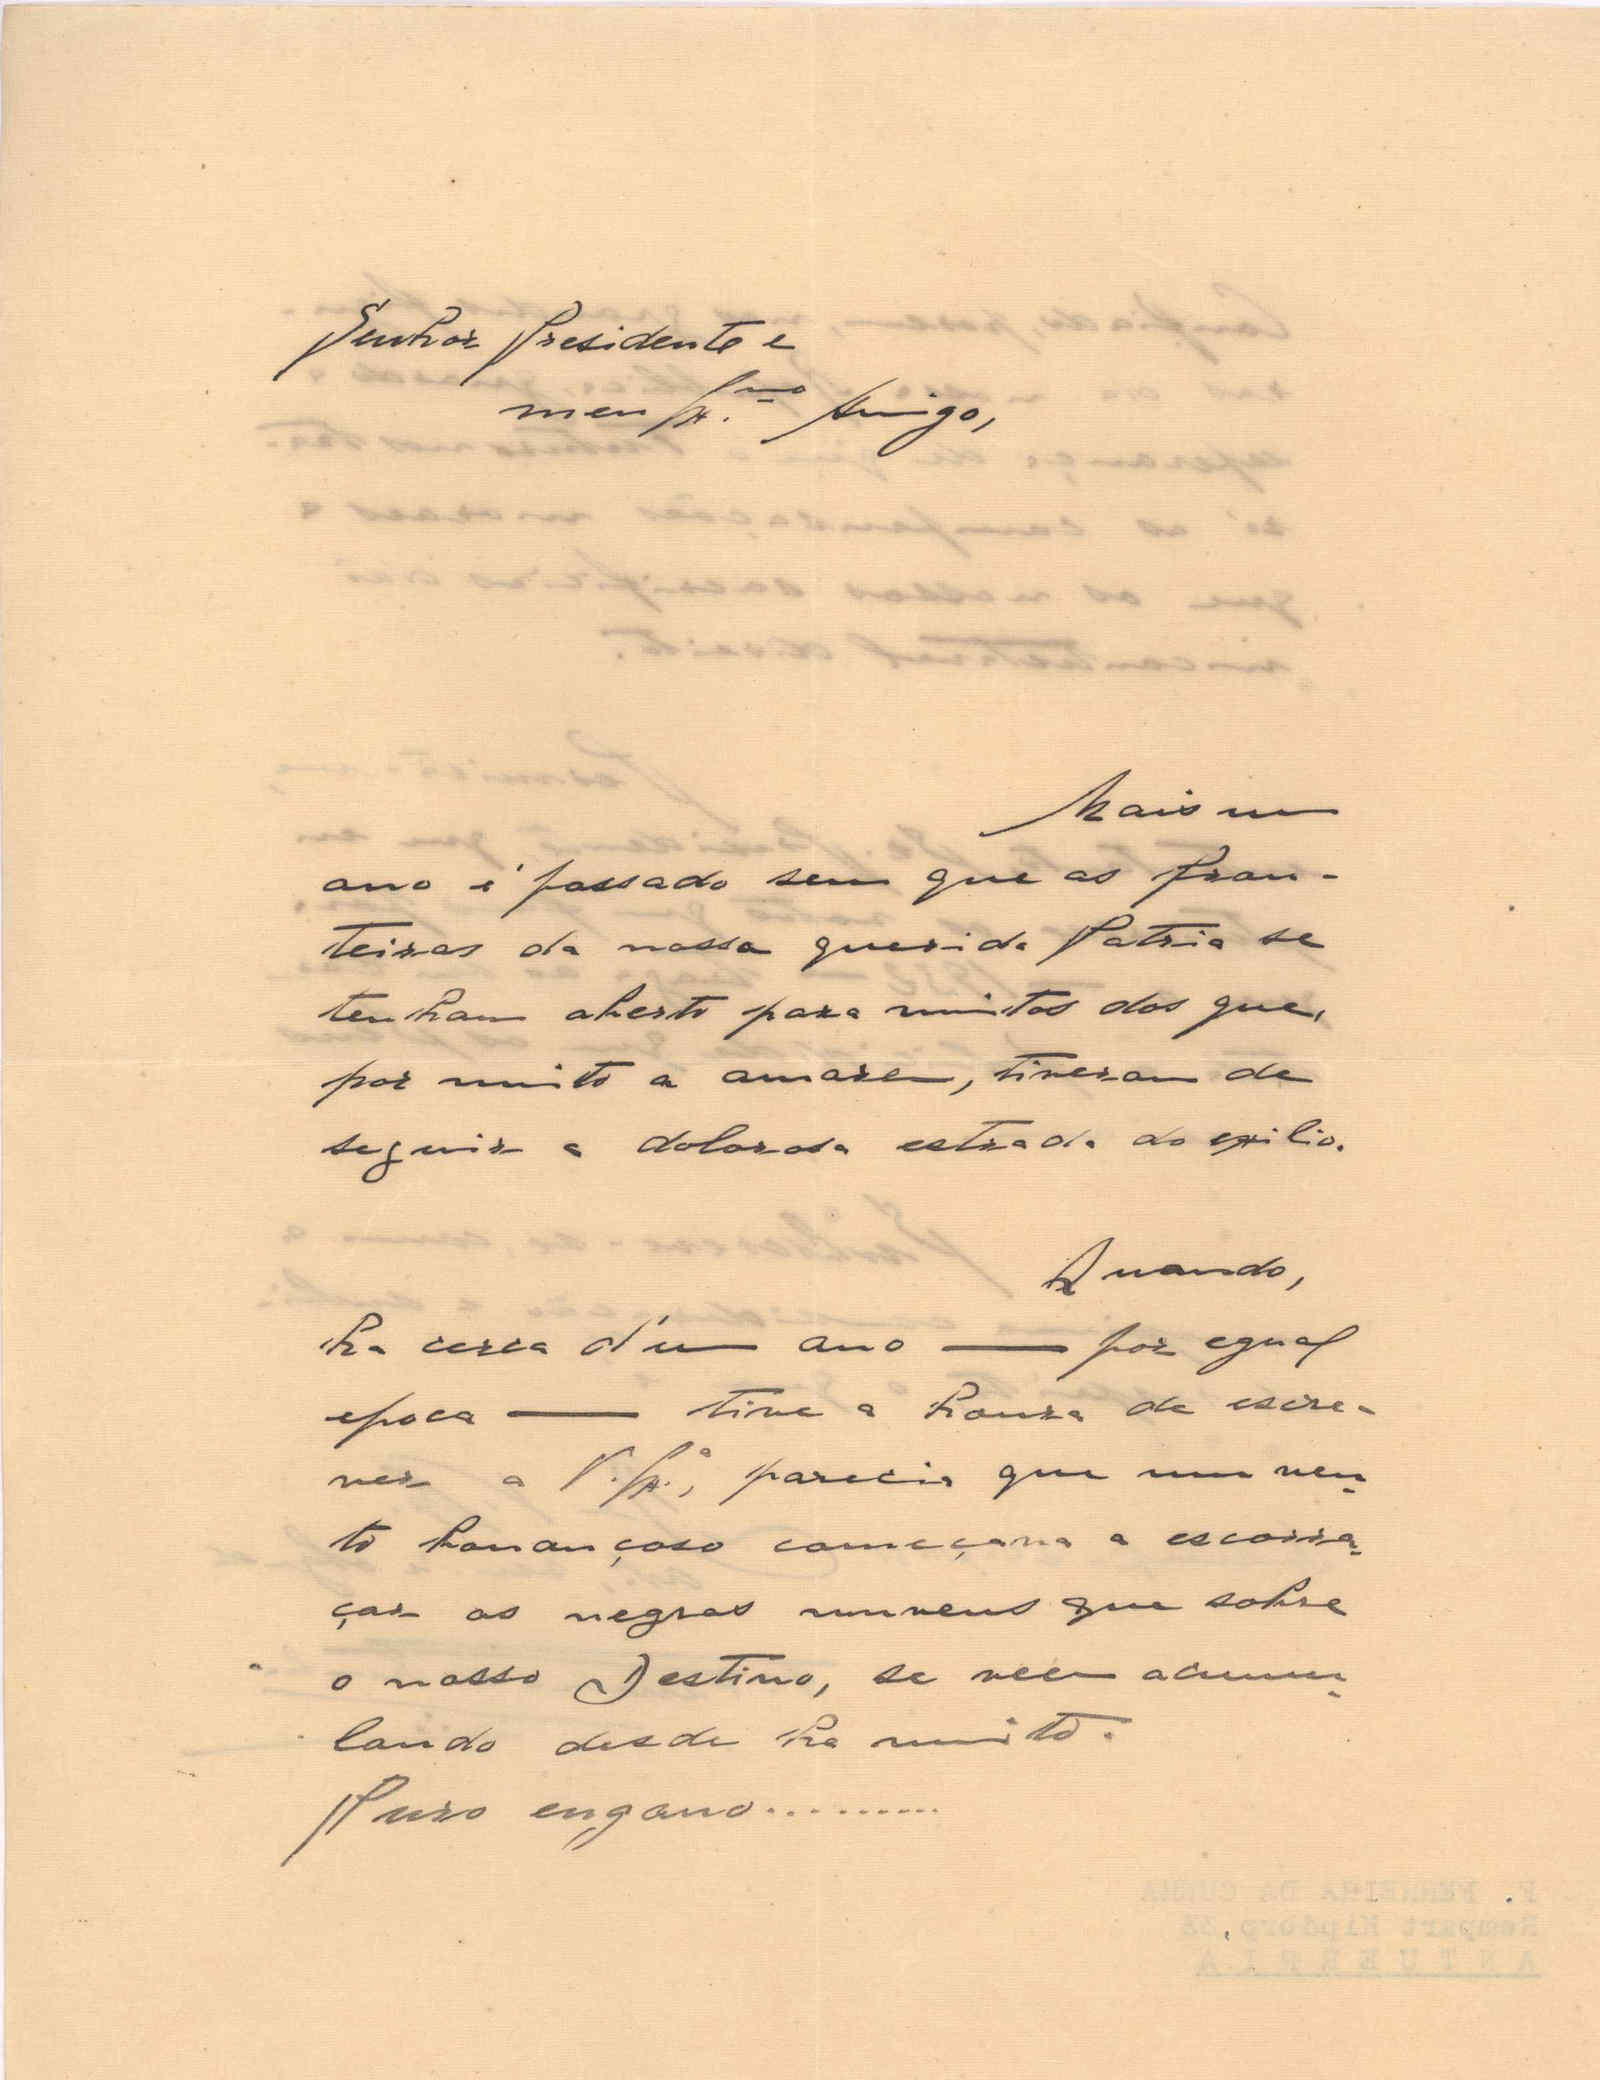 Senhor Presidente e
meu Ex.mo Amigo,
Mais um
ano é passado sem que as fron-
teiras da nossa querida Patria se
tenham aberto para muitos dos que,
por muito a amarem, tiveram de
seguir a dolorosa estrada do exilio.
Quando,
ha cerca d'um ano — por egual
epoca — tive a honra de escre-
ver a V. Ex.ª, parecia que um ven-
to bonançoso começava a escorra-
çar as negras nuvens que sobre
o nosso Destino, se veem acumu-
lando desde ha muito.
Puro engano..........
F. FERREIRA DA CUNHA
Rempart Kipdorp, 38
ANTUERPIA